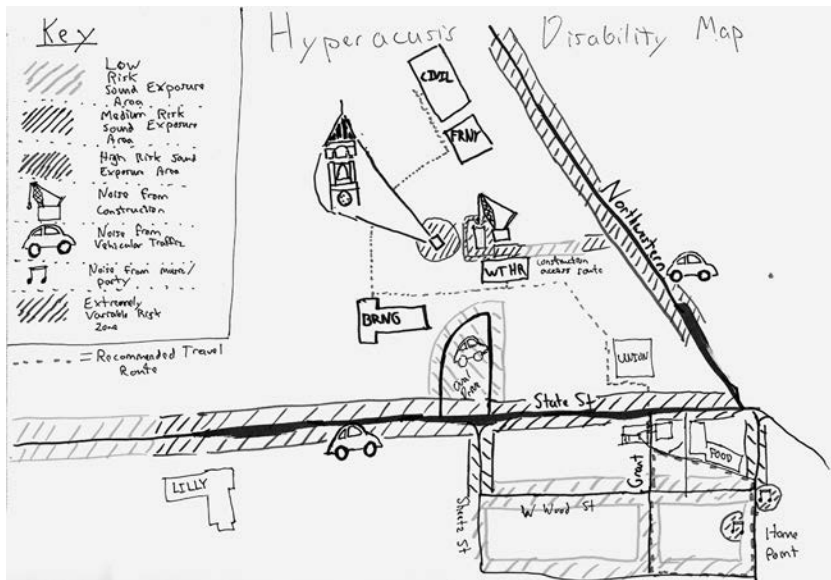 Key
Low
Risk
Sound Exposure
Area
Medium Risk
Sound Exposure
Area
High Risk Sound
Exposure Area
Noise from
Construction
Noise from
Vehicular Traffic
Noise from music/
party
Extremely
Variable Risk
Zone
= Recommended Travel
Route
Hyperacusis Disability Map
CIVIL
FRNY
Northwestern
WTHR
construction
access route
BRNG
Oval
Drive
UNION
State St
LILLY
Sheetz St
Grant
FOOD
W Wood St
Home
Point